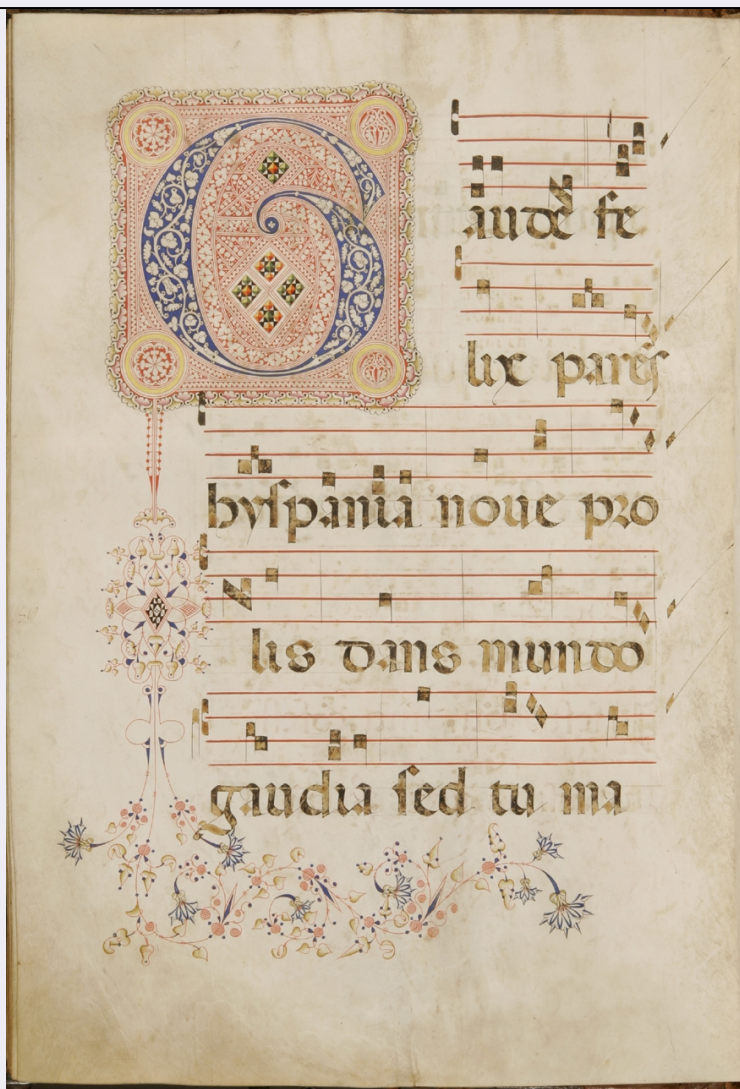 Gaude fe
lix parēs
hyspania noue pro
lis dans mundo
gaudia sed tu ma